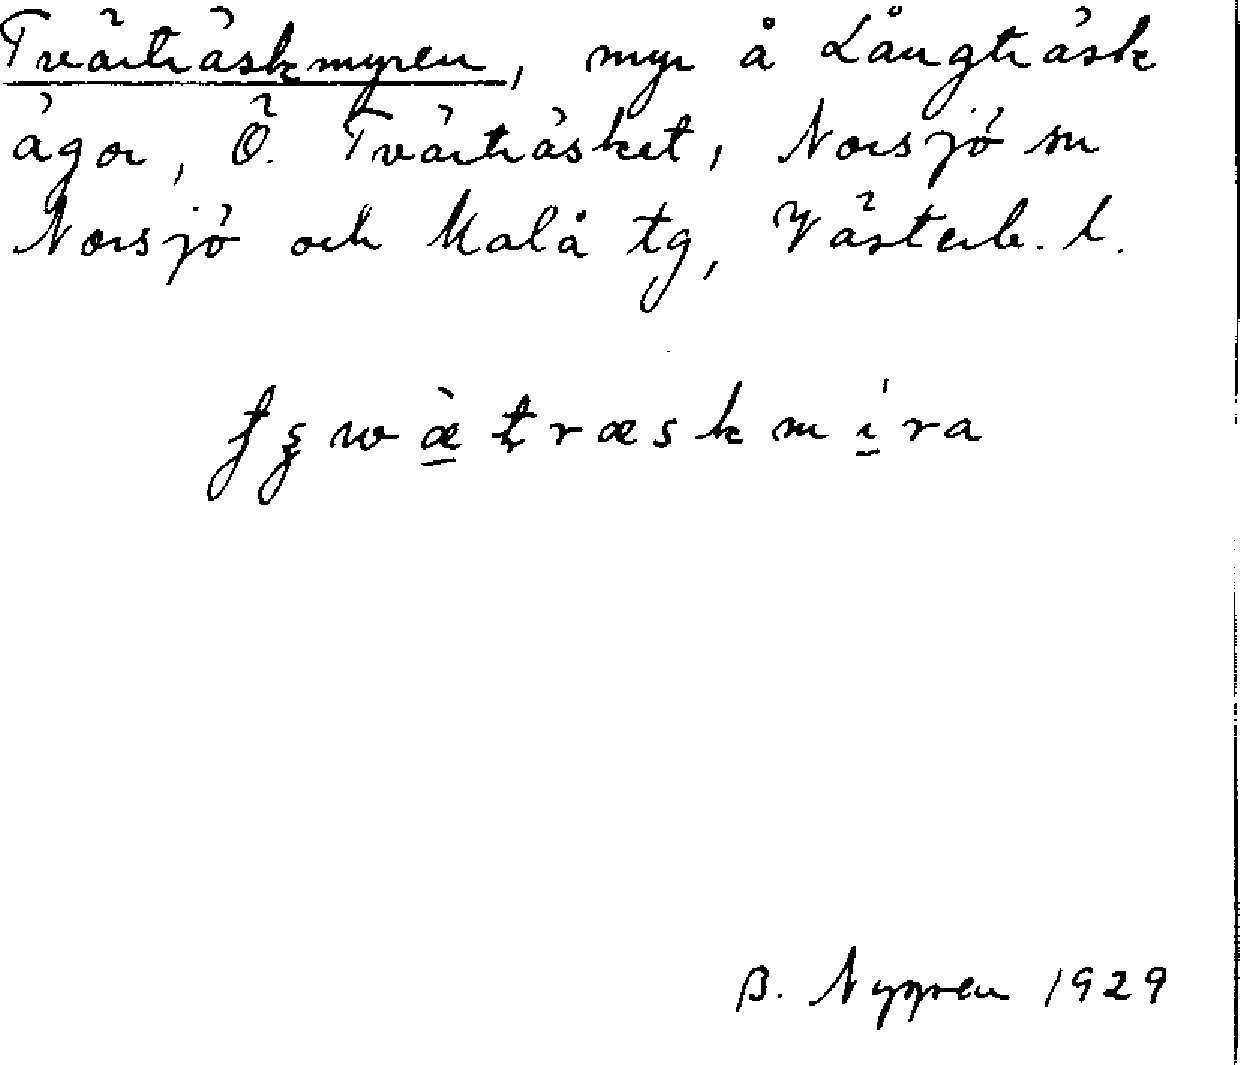 Tvärträskmyren, myr å Långträsk
ägor, Ö. Tvärträsket, Norsjö sn
Norsjö och Malå tg, Västerb. l.
wæ̀træskmíra
B. Nygren 1929